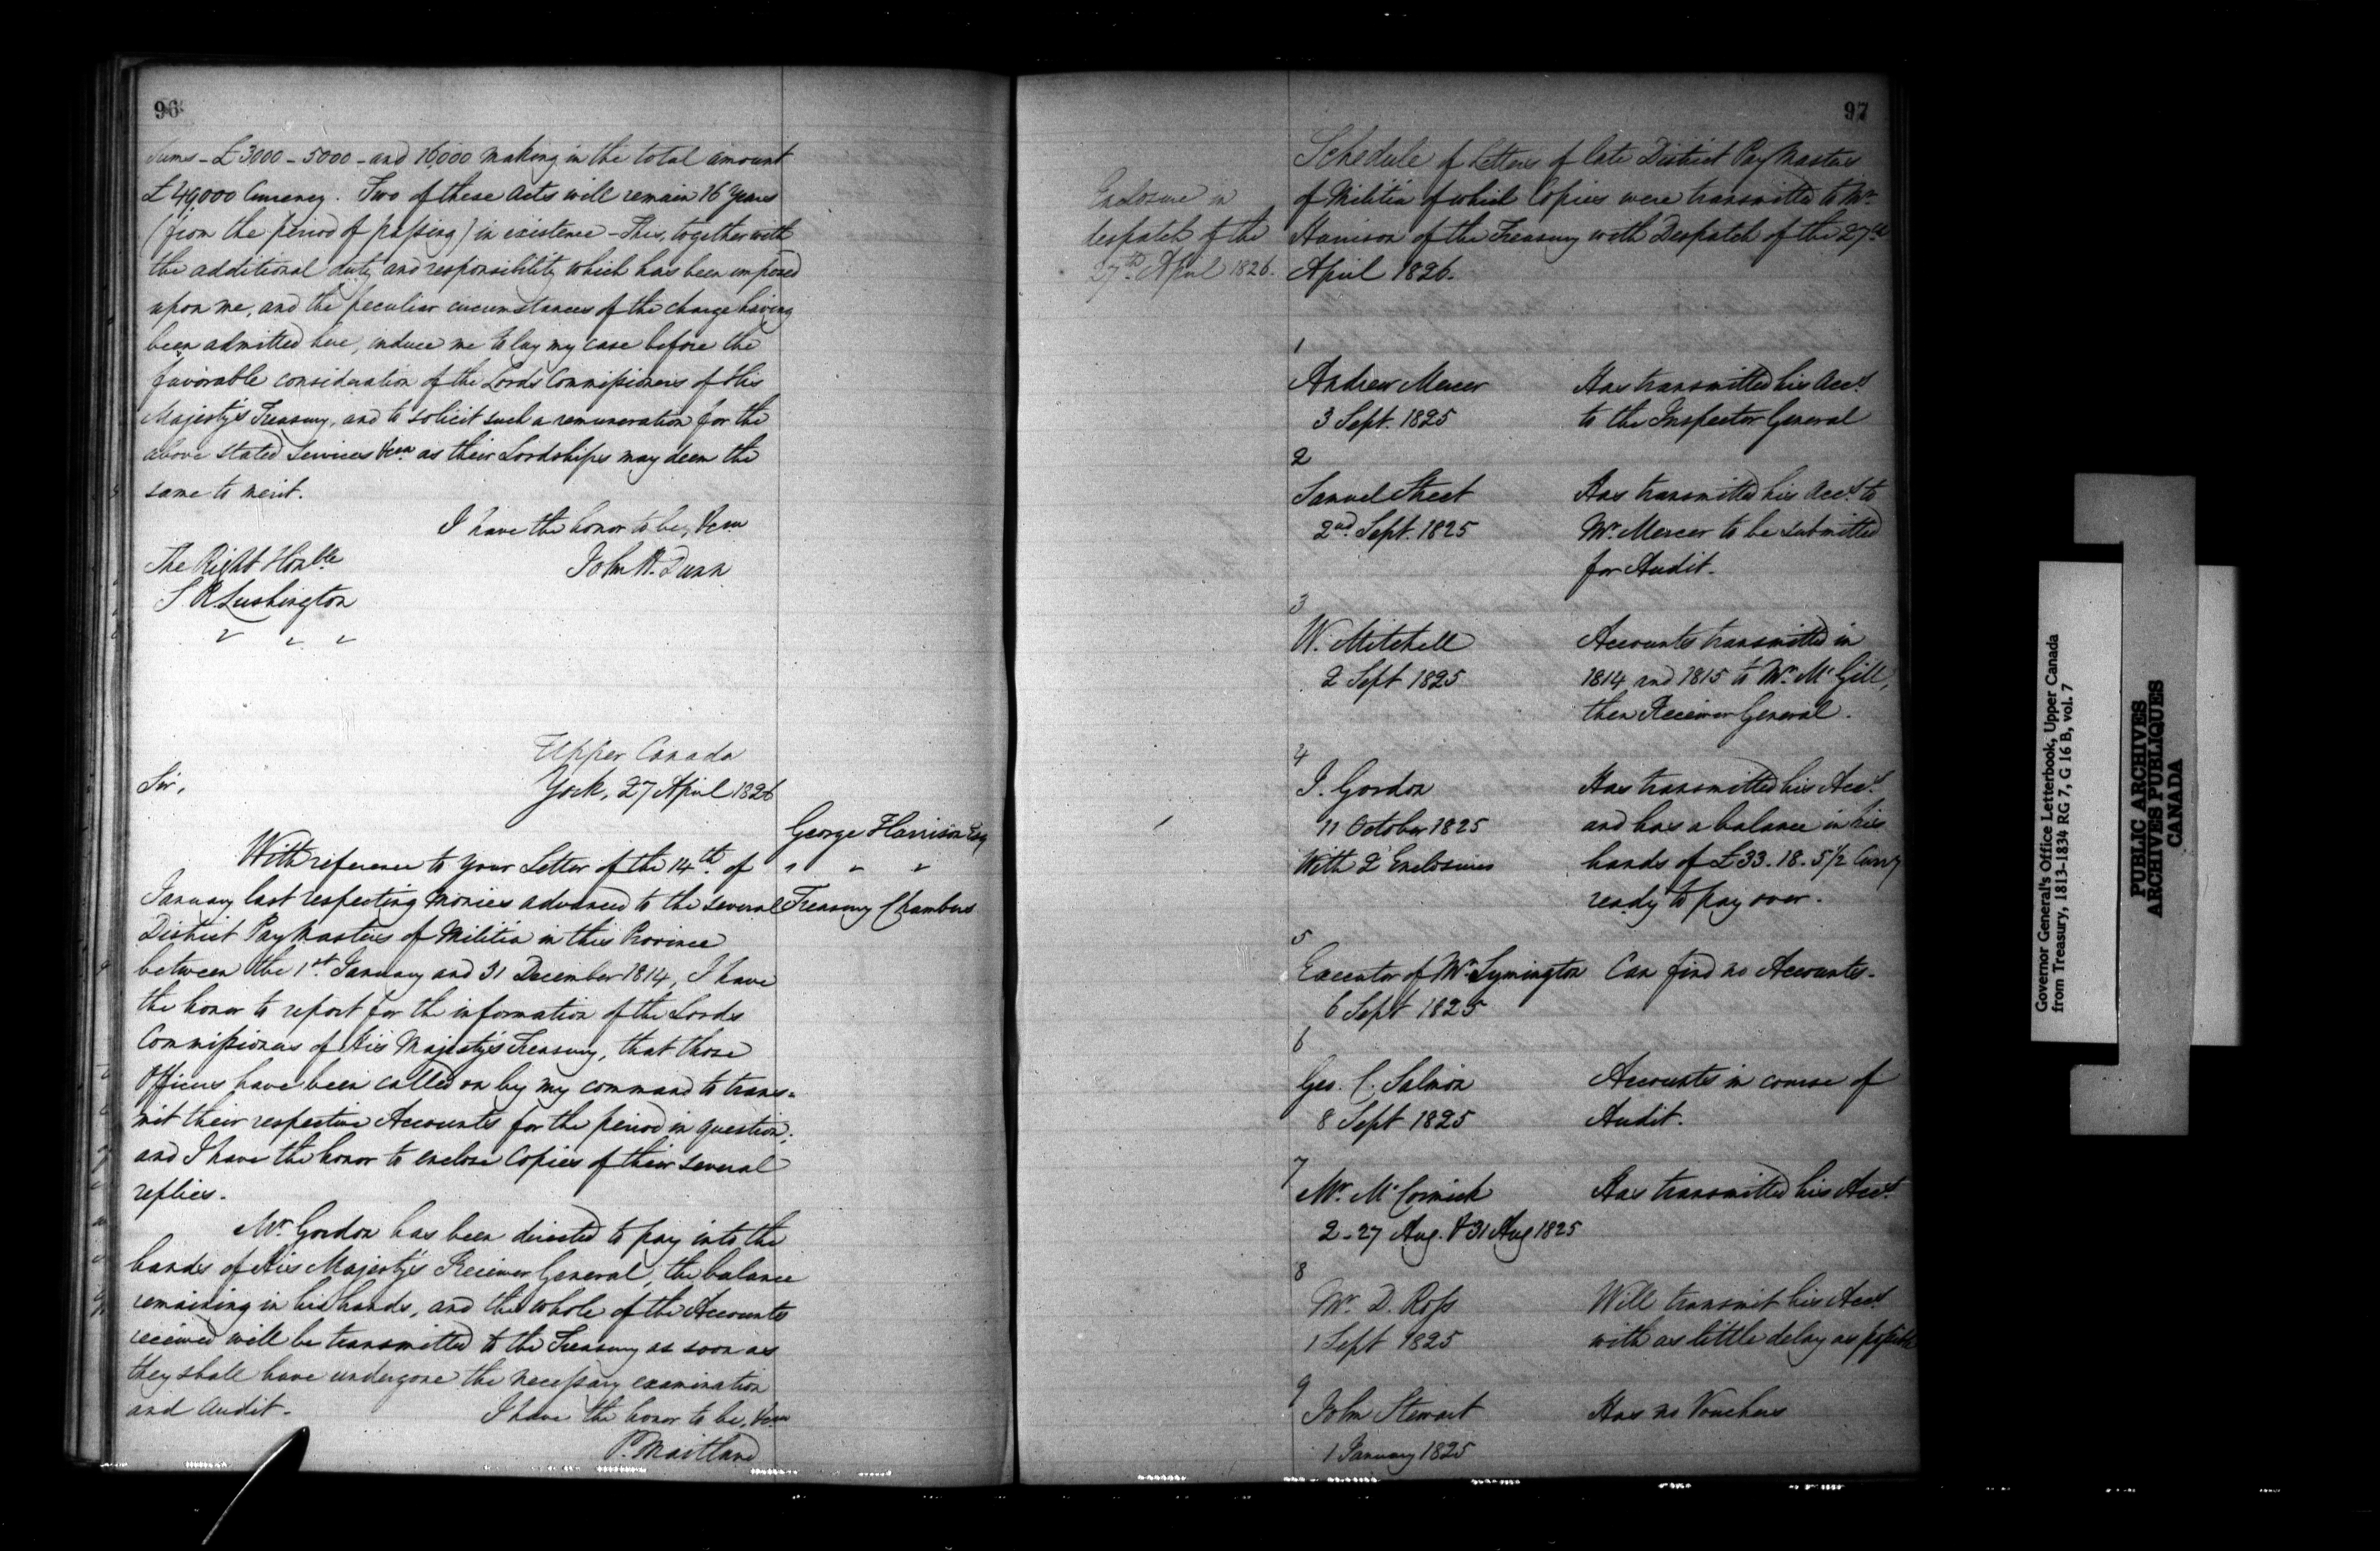 96
Sums - £3000 - 5000 - and 16000 making in the total amount
£49,000 Currency. Two of these Acts will remain 16 Years
(from the period of passing) in existence - This, together with
the additional duty and responsibility which has been imposed
upon me, and the peculiar circumstances of the charge having
been admitted here, induce me to lay my case before the
favorable consideration of the Lords Commissioners of His
Majesty's Treasury, and to solicit such a remuneration for the
above stated services &ca as their Lordships may deem the
same to merit.
I have the honor to be, &ca
John H. Dunn
The Right Honble
S R. Lushington
" " "
Upper Canada
York, 27 April 1826
Sir,
George Harrison Esq
" " "
Treasury Chambers
With reference to your Letter of the 14th of
January last respecting monies advanced to the several
District PayMasters of Militia in this Province
between the 1st January and 31 December 1814, I have
the honor to report for the information of the Lords
Commissioners of His Majesty's Treasury, that those
Officers have been called on by my command to trans=
mit their respective Accounts for the period in question;
and I have the honor to enclose Copies of their several
replies.
Mr Gordon has been directed to pay into the
hands of His Majesty's Receiver General, the balance
remaining in his hands, and the whole of the Accounts
received will be transmitted to the Treasury as soon as
they shall have undergone the necessary examination
and Audit.
I have the honor to be, &ca
P. Maitland
97
Enclosure in
despatch of the
27th April 1826.
Schedule of Letters of late District PayMasters
of Militia of which Copies were transmitted to Mr
Harrison of the Treasury with Despatch of the 27th
April 1826.
1
Andrew Mercer Has transmitted his Acct
3 Sept. 1825 to the Inspector General
2
Samuel Street Has transmitted his Acct to
2nd Sept. 1825 Mr. Mercer to be submitted
for Audit.
3
W. Mitchell Accounts transmitted in
2 Sept 1825 1814 and 1815 to Mr. McGill,
then Receiver General.
4
J. Gordon Has transmitted his Acct
11 October 1825 and has a balance in his
With 2 Enclosures hands of £33.18.5½ Curry
ready to pay over.
5
Executor of Mr Symington Can find no Accounts.
6 Sept 1825
6
Geo. C. Salmon Accounts in course of
8 Sept 1825 Audit.
7
Mr. McCormick Has transmitted his Acct
2 - 27 Aug. & 31 Aug 1825
8
Mr. D. Ross Will transmit his Acct
1 Sept 1825 with as little delay as possible
9
John Stewart Has no Vouchers
1 January 1825
Governor General's Office Letterbook, Upper Canada
from Treasury, 1813-1834 RG 7, G 16 B, vol. 7
PUBLIC ARCHIVES
ARCHIVES PUBLIQUES
CANADA